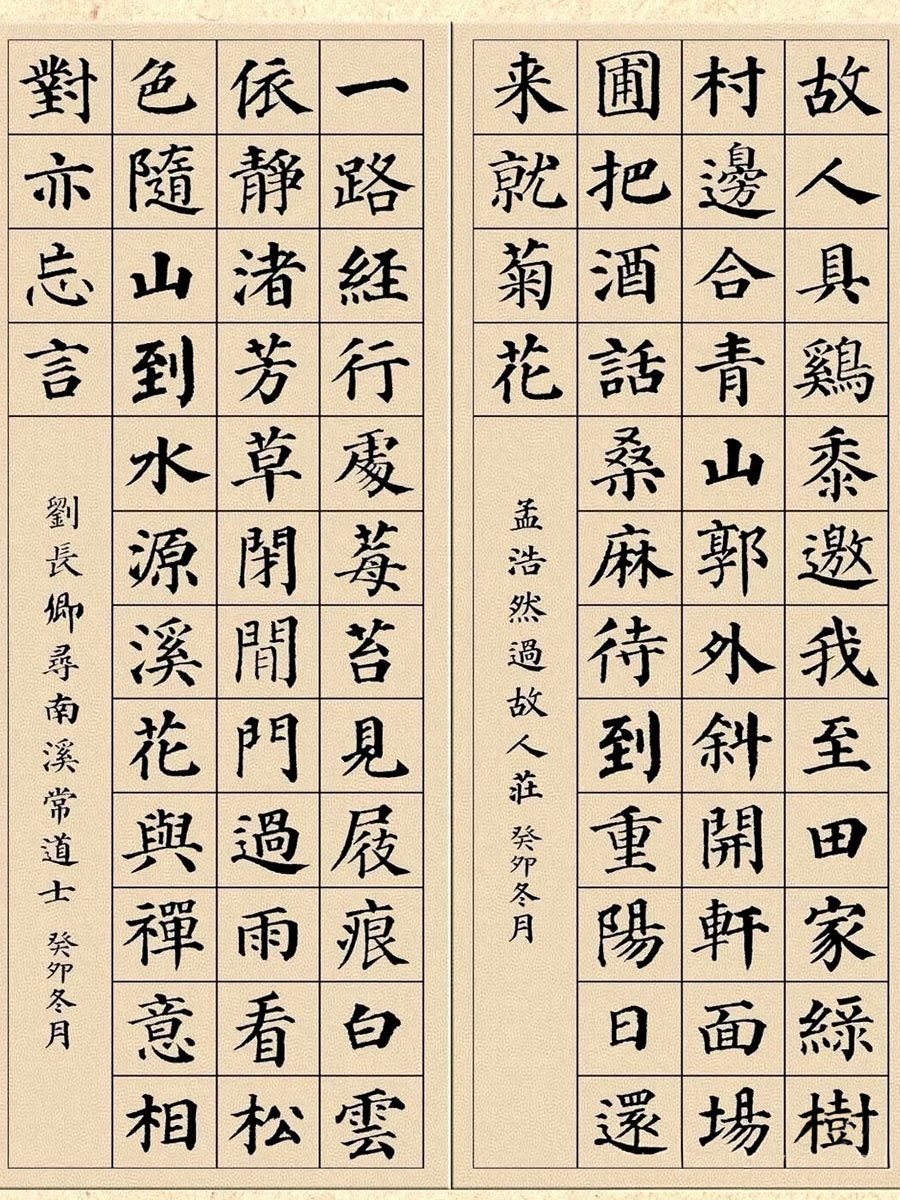 故人具鷄黍邀我至田家綠樹
村邊合青山郭外斜開軒面場
圃把酒話桑麻待到重陽日還
来就菊花
孟浩然過故人莊 癸卯冬月
一路経行處莓苔見屐痕白雲
依靜渚芳草閉閒門過雨看松
色隨山到水源溪花與禪意相
對亦忘言
劉長卿尋南溪常道士 癸卯冬月